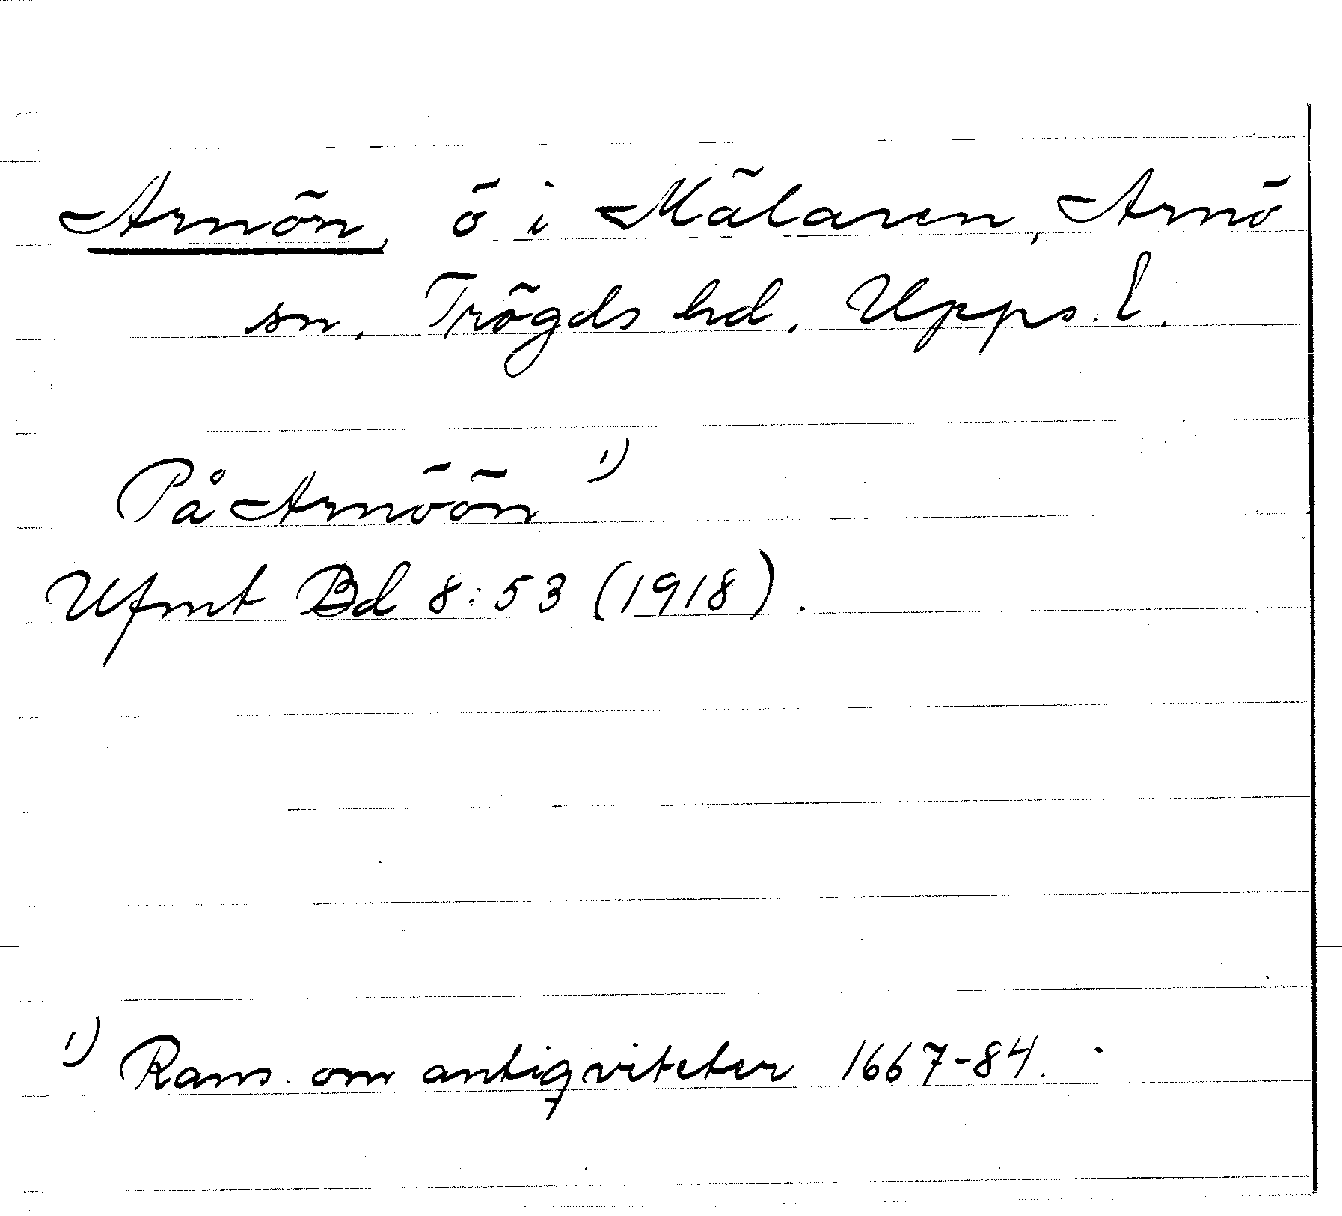 Arnön, ö i Mälaren, Arnö
sn, Trögds hd, Upps. l.
På Arnöön 1)
Ufmt Bd 8:53 (1918).
1) Rans. om antiqviteter 1667-84.